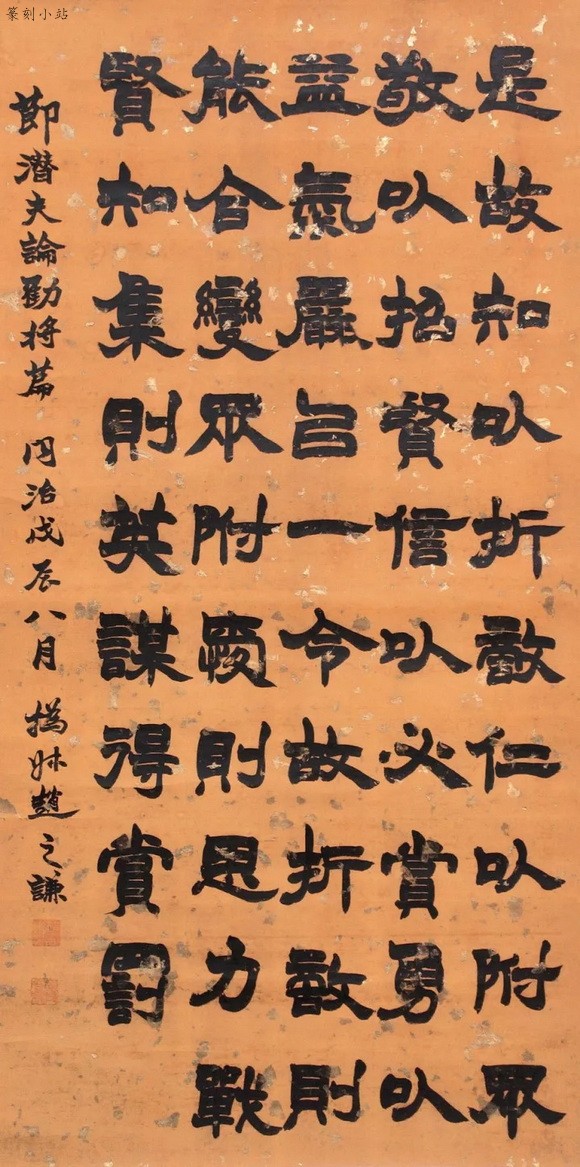 篆刻小站
是故知㕥折敵仁㕥附眾
敬㕥招賢信㕥必賞勇㕥
益氣嚴㠯一令故折敵則
能合變眾附愛則思力戰
賢知集則英謀得賞罰
節潛夫論勸將篇 同治戊辰八月 撝叔趙之謙